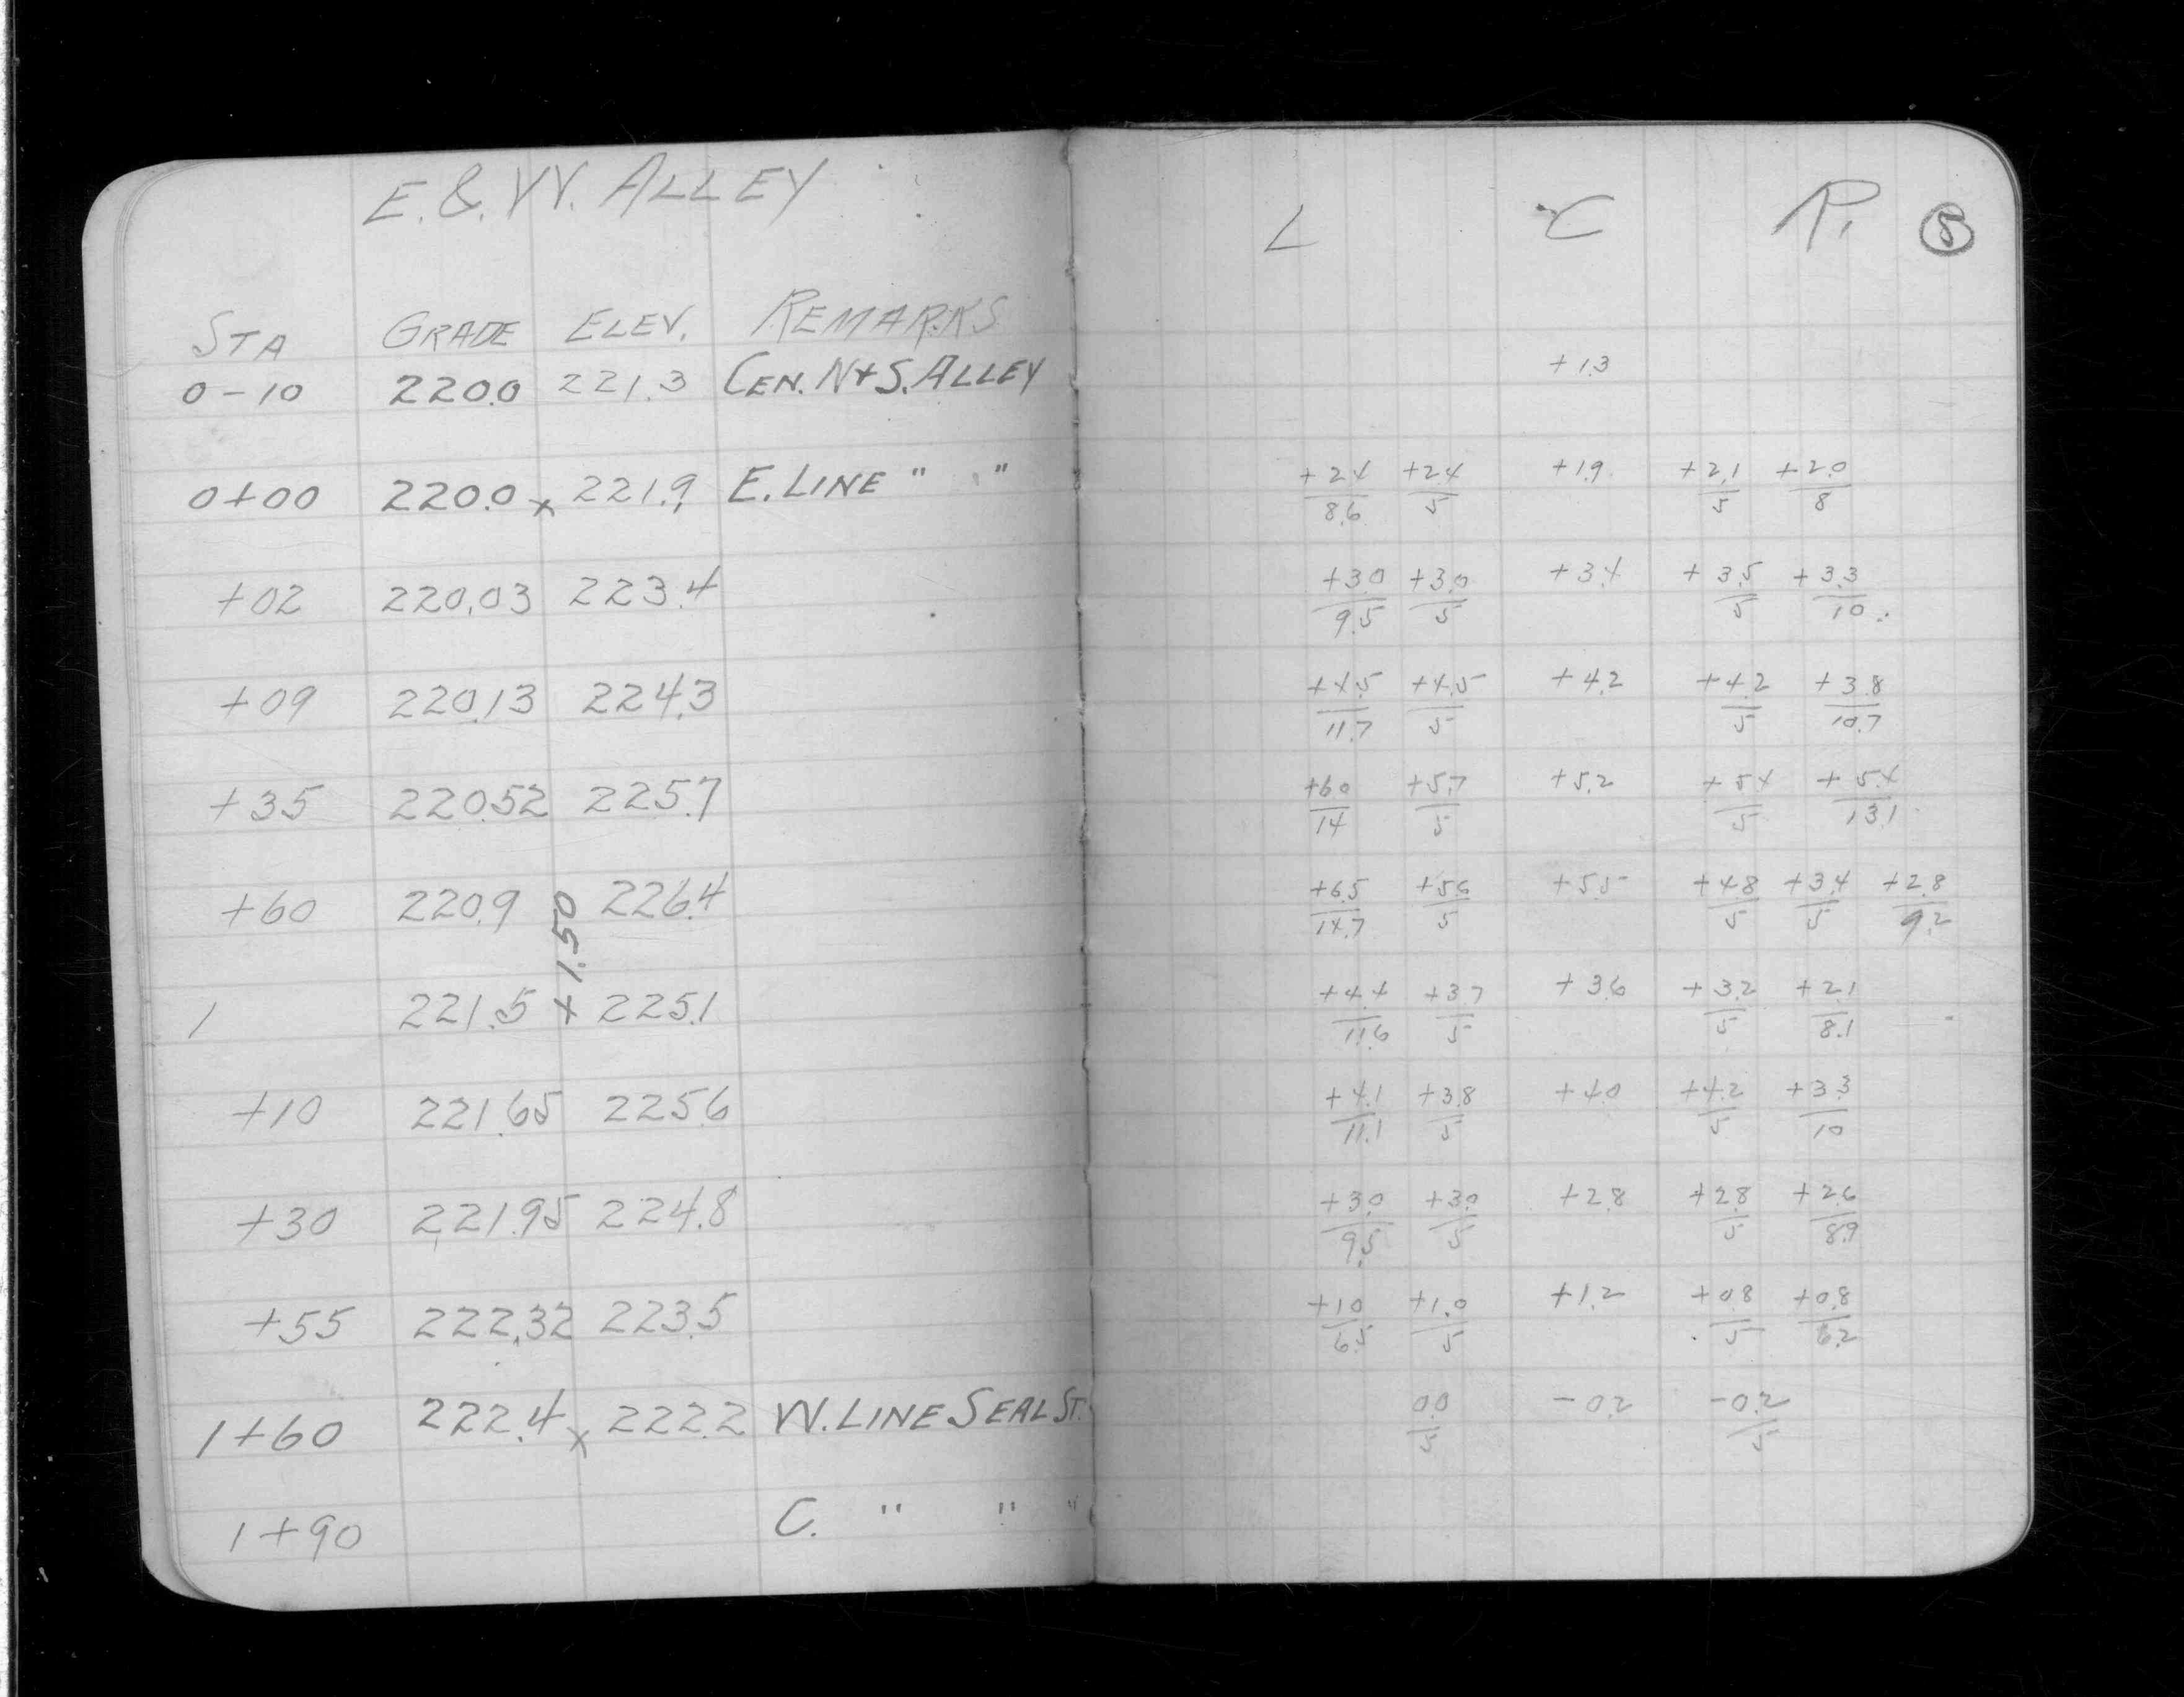 E. & W. ALLEY
L C R. 8
STA GRADE ELEV. REMARKS
0-10 220.0 221.3 CEN. N+S. ALLEY +1.3
0+00 220.0 x 221.9 E. LINE " " +2.4/8.6 +2.4/5 +1.9 +2.1/5 +2.0/8
+02 220.03 223.4 +3.0/9.5 +3.0/5 +3.4 +3.5/5 +3.3/10
+09 220.13 224.3 +4.5/11.7 +4.5/5 +4.2 +4.2/5 +3.8/10.7
+35 220.52 225.7 +6.0/14 +5.7/5 +5.2 +5.4/5 +5.4/13.1
+60 220.9 226.4 +6.5/14.7 +5.6/5 +5.5 +4.8/5 +3.4/5 +2.8/9.2
+1.50
1 221.5 x 225.1 +4.4/11.6 +3.7/5 +3.6 +3.2/5 +2.1/8.1
+10 221.65 225.6 +4.1/11.1 +3.8/5 +4.0 +4.2/5 +3.3/10
+30 221.95 224.8 +3.0/9.5 +3.0/5 +2.8 +2.8/5 +2.6/8.9
+55 222.32 223.5 +1.0/6.5 +1.0/5 +1.2 +0.8/5 +0.8/6.2
1+60 222.4 x 222.2 W. LINE SEAL ST. 0.0/5 -0.2 -0.2/5
1+90 C. " " "